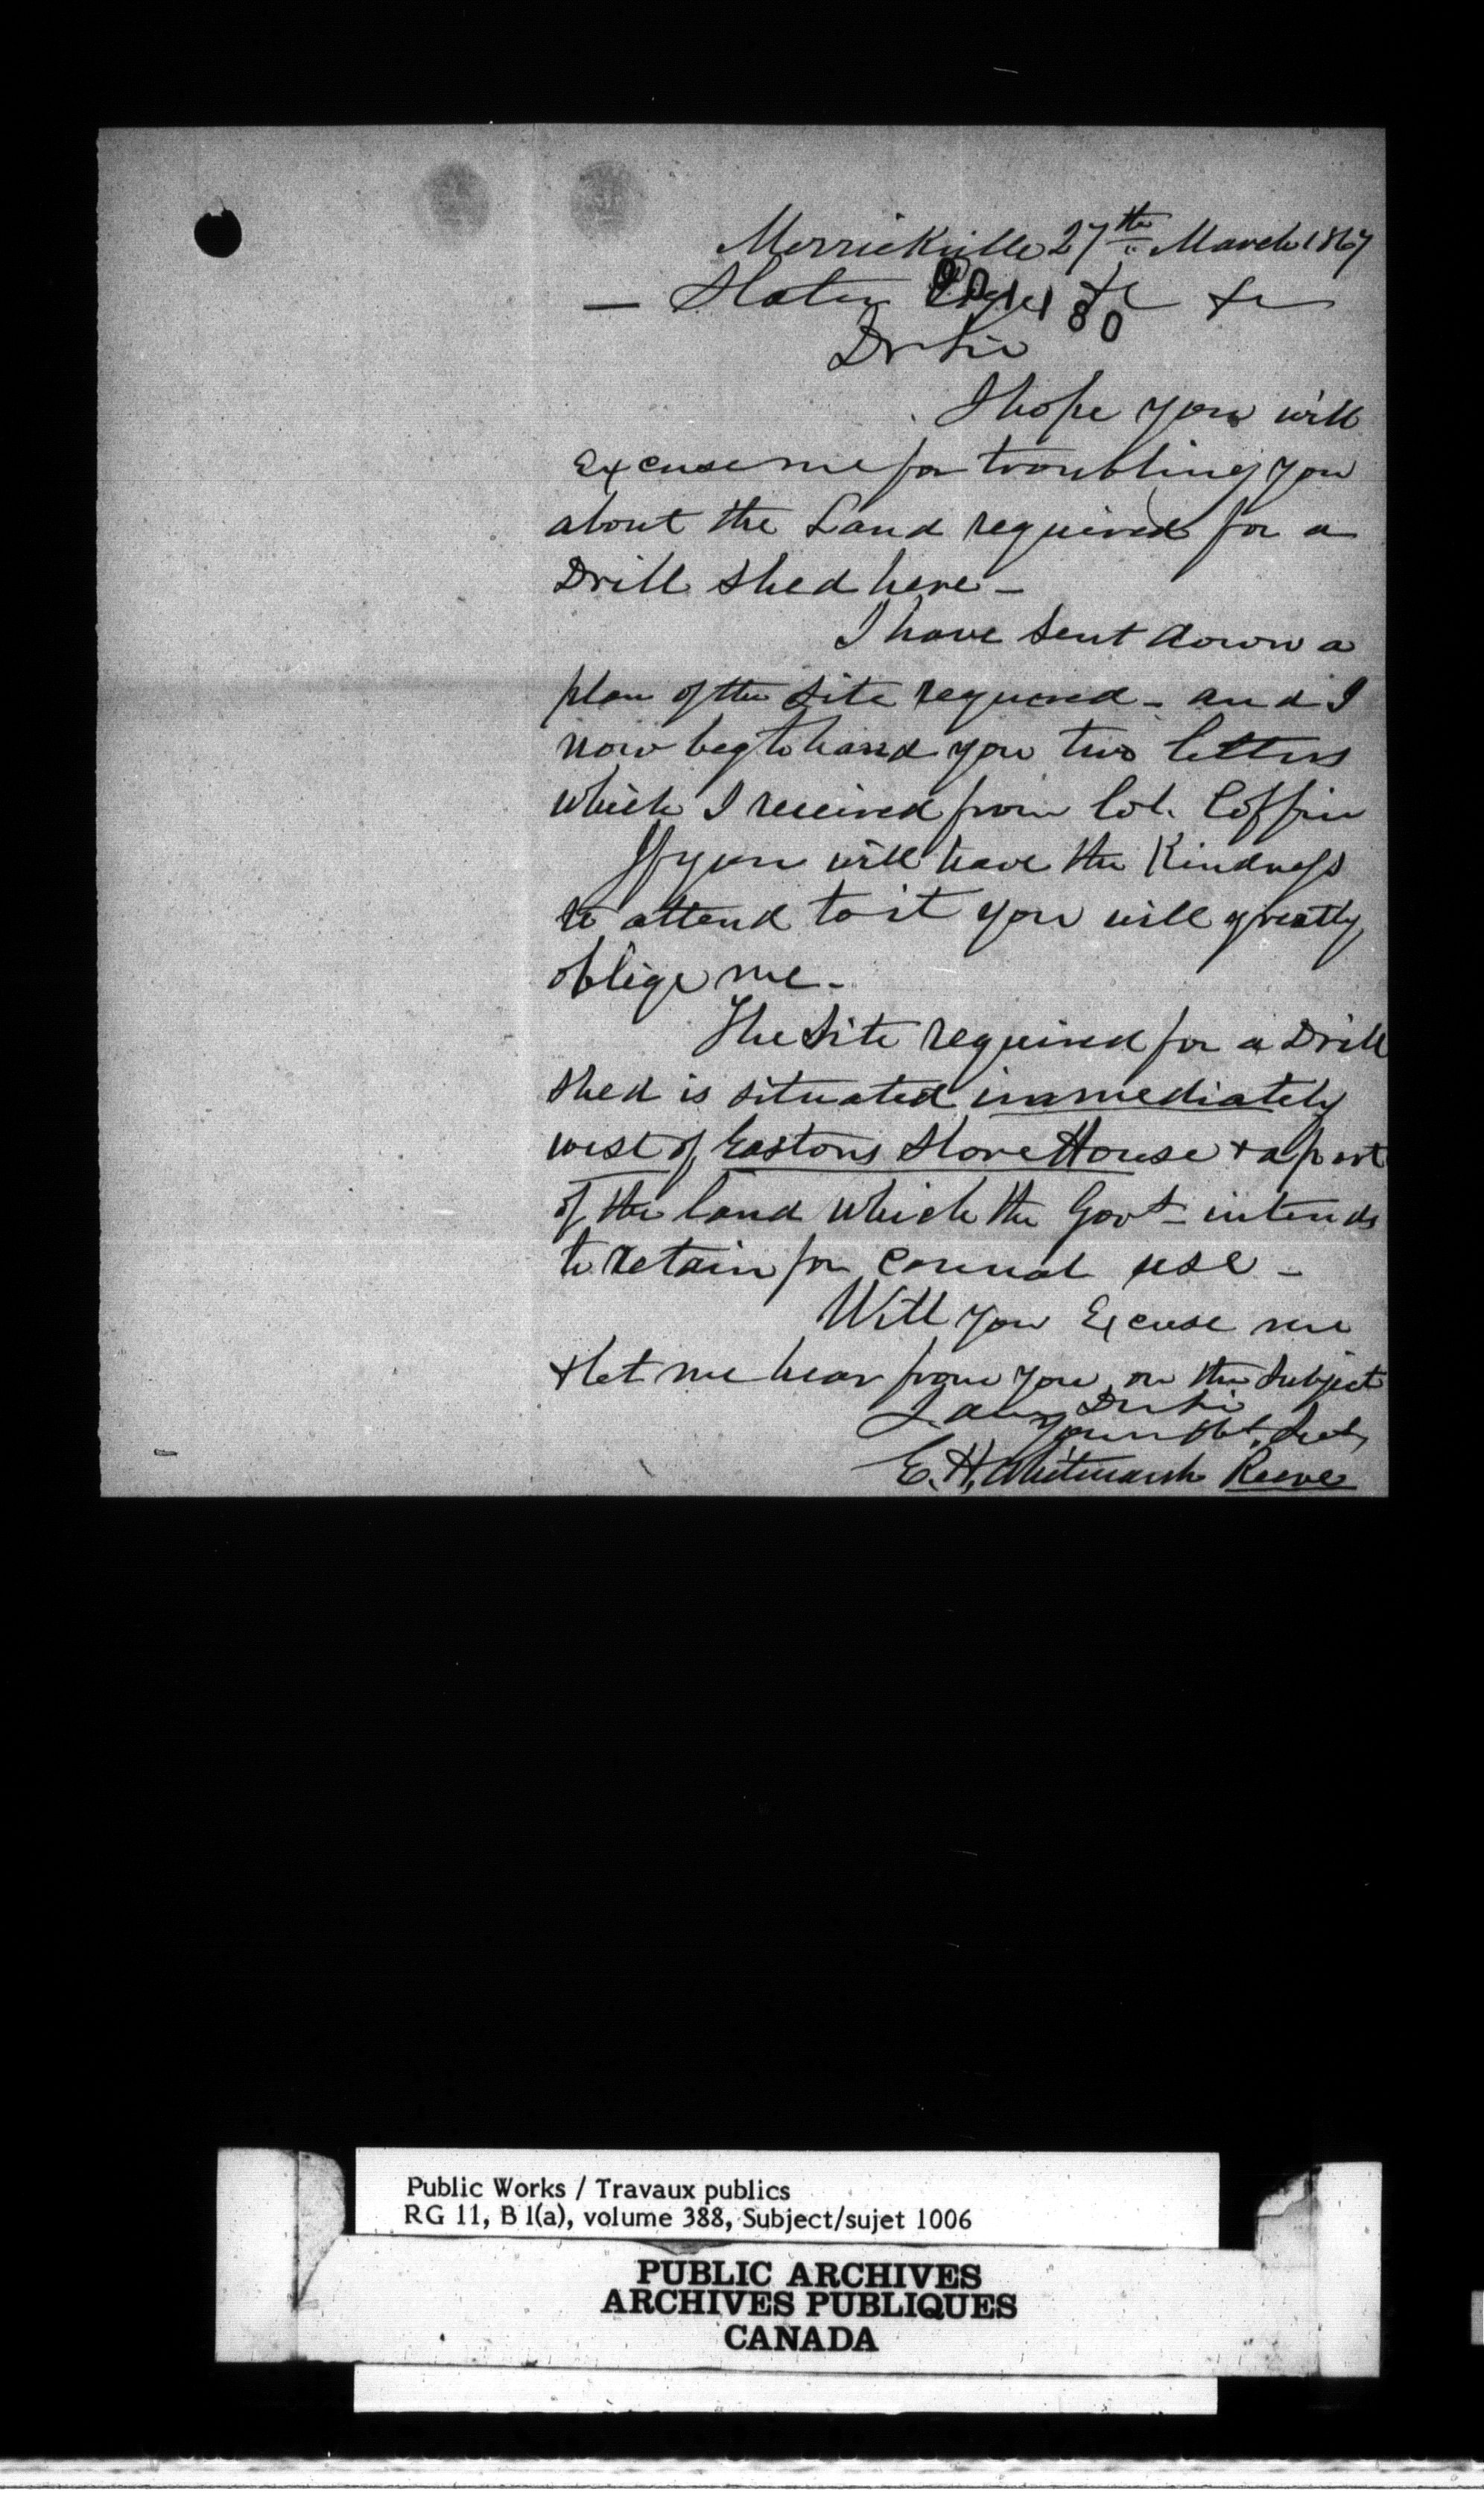 Merrickville 27th March 1867
— Slater Esqr &c &c
90141
80
Dr Sir
I hope you will
Excuse me for troubling you
about the Land required for a
Drill shed here —
I have sent down a
plan of the site required — and I
now beg to hand you two letters
which I received from Col. Coffin
If you will have the Kindness
to attend to it you will greatly
oblige me —
The site required for a Drill
shed is situated immediately
west of Eastons Store House & a part
of the land which the Govt — intends
to retain for cannal use —
Will you Excuse me
& let me hear from you on the subject
I am Dr Sir
Your Obt. Svt,
E. H. Whitmarsh Reeve
Public Works / Travaux publics
RG 11, B 1(a), volume 388, Subject/sujet 1006
PUBLIC ARCHIVES
ARCHIVES PUBLIQUES
CANADA